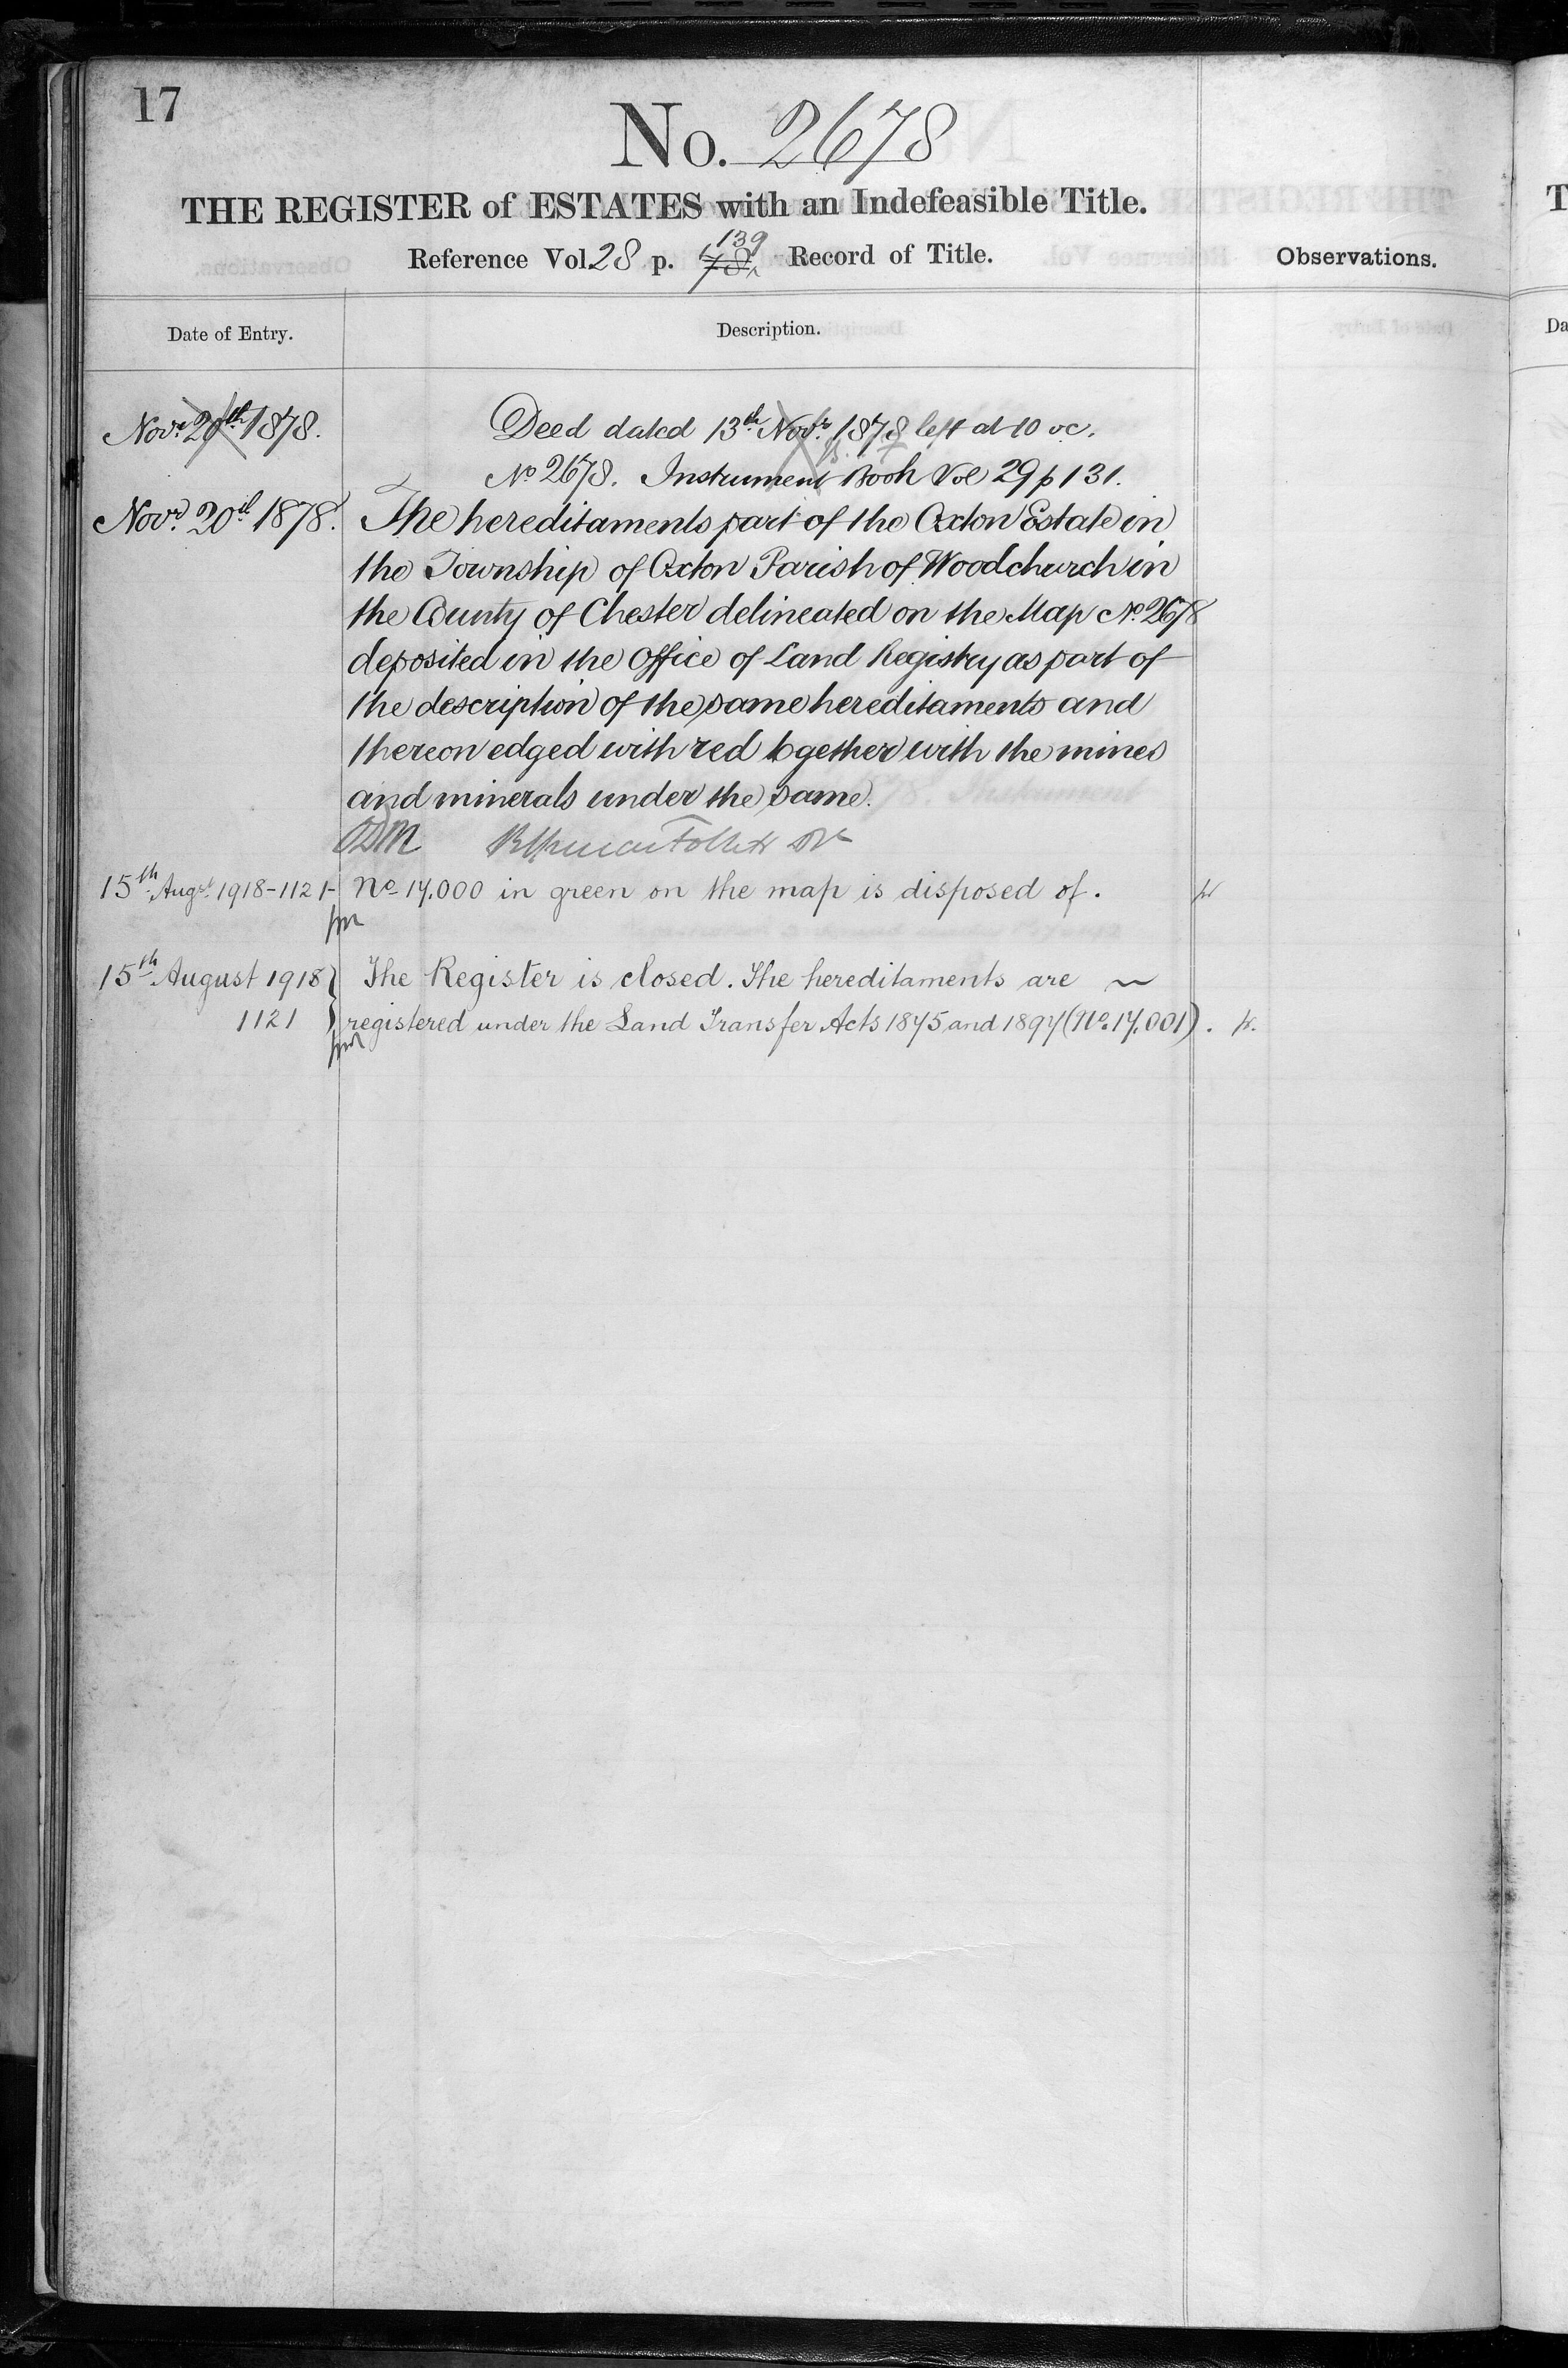 17
No. 2678
THE REGISTER of ESTATES with an Indefeasible Title.
139
Reference Vol. 28 p. 78 Record of Title.
Observations.
Date of Entry.
Description.
Novr. 20th 1878. Deed dated 13th Novr. 1878 left at 10 oc.
No 2678. Instrument Book Vol 29 p 131.
Novr. 20th 1878. The hereditaments part of the Oxton Estate in
the Township of Oxton Parish of Woodchurch in
the County of Chester delineated on the Map No. 2678
deposited in the Office of Land Registry as part of
the description of the same hereditaments and
thereon edged with red together with the mines
and minerals under the same.
15th Augst. 1918-1121- No 17.000 in green on the map is disposed of.
15th August 1918 } The Register is closed. The hereditaments are ~
1121 } registered under the Land Transfer Acts 1875 and 1897 (No. 17.001).